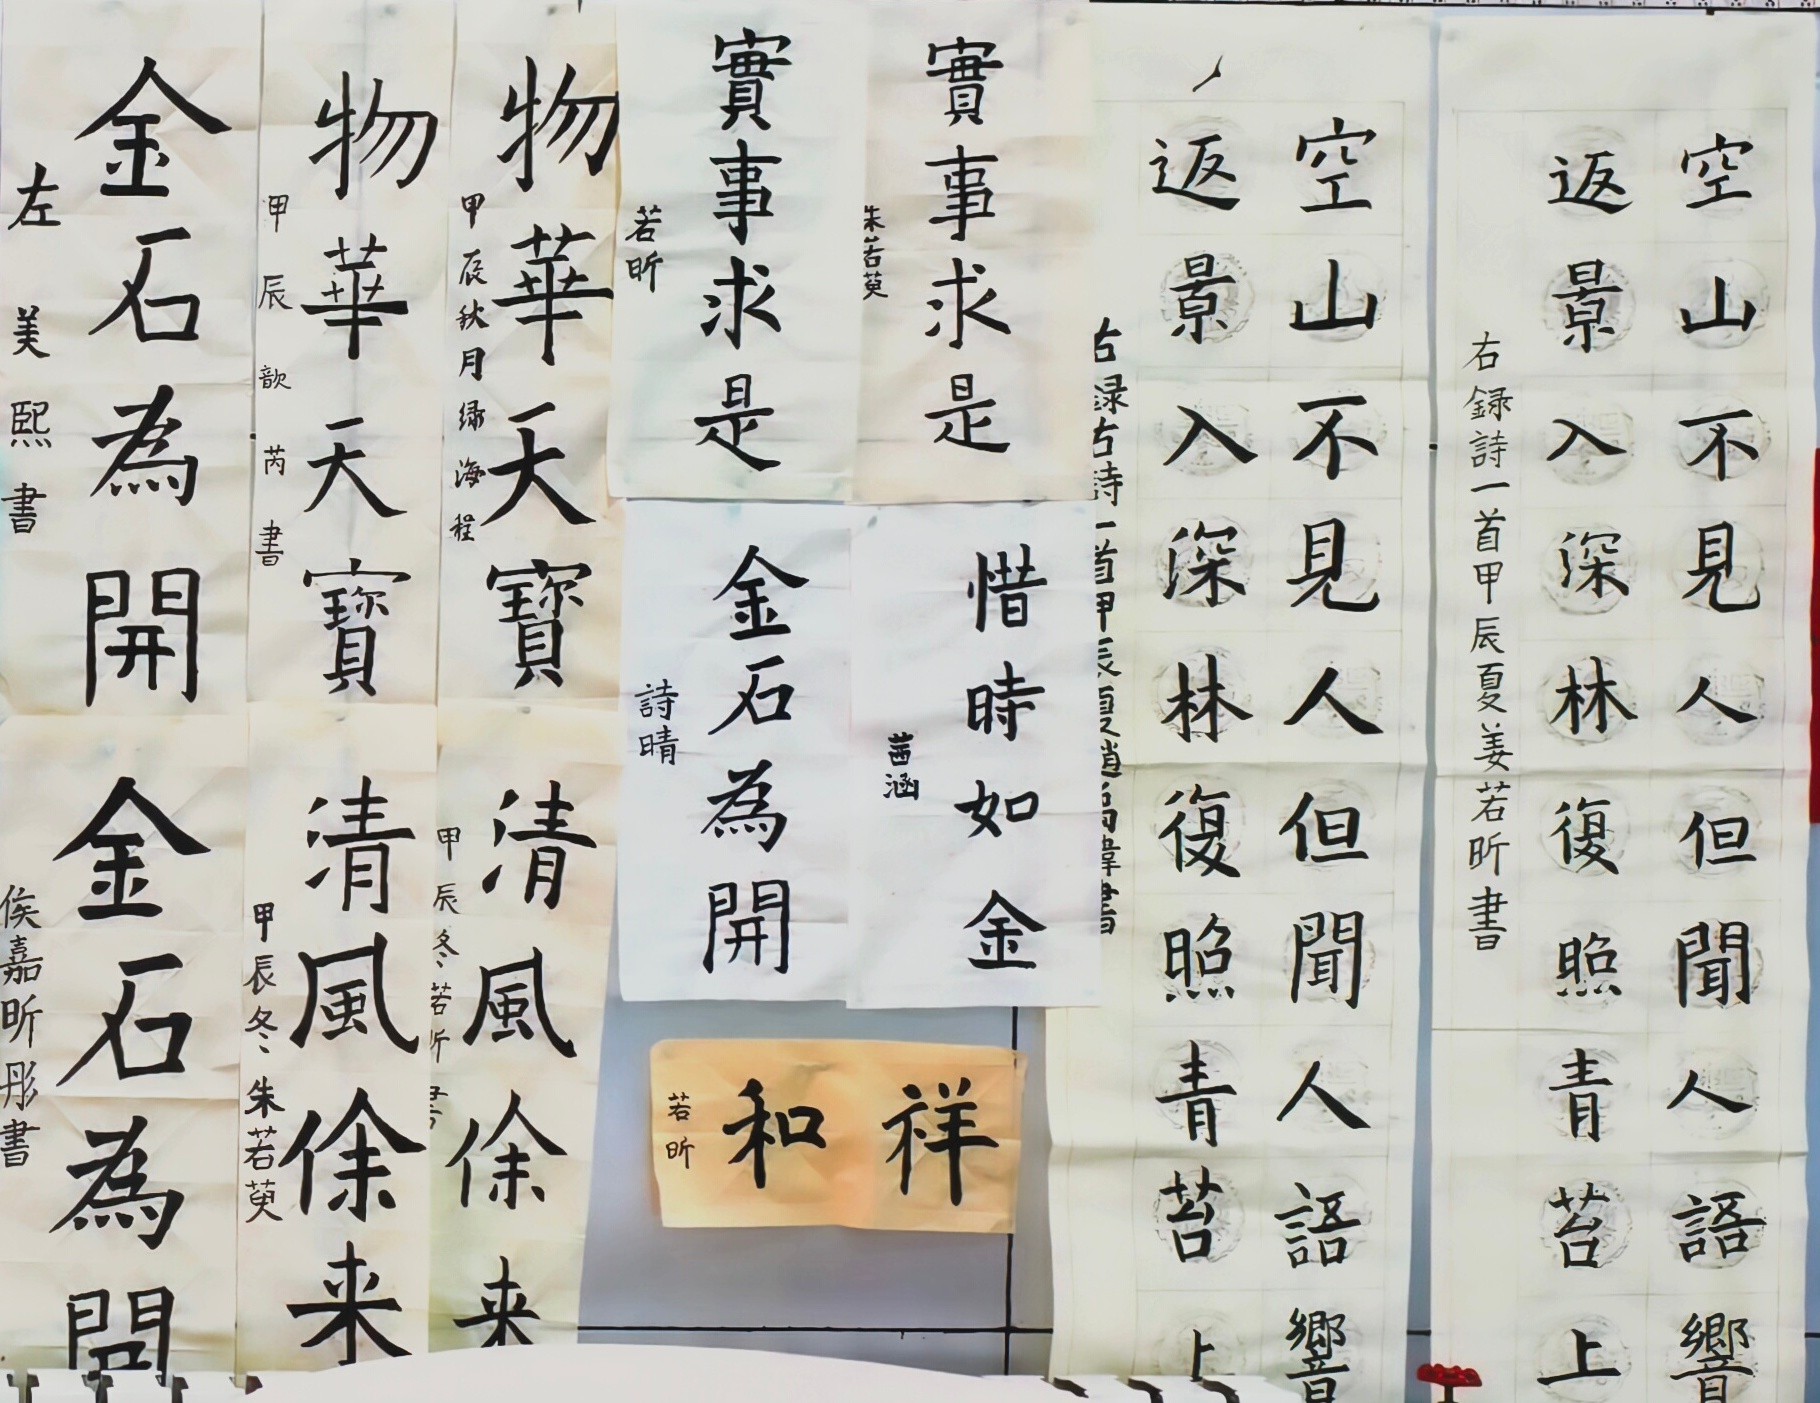 空山不見人但聞人語響
返景入深林復照青苔上
右録詩一首甲辰夏姜若昕書
空山不見人但聞人語響
返景入深林復照青苔上
右録古詩一首甲辰夏趙
書
實事求是
朱若萸
實事求是
若昕
惜時如金
茜涵
金石為開
詩晴
祥和
若昕
物華天寶
甲辰秋月緑海程
物華天寶
甲辰歆芮書
金石為開
左美熙書
清風徐来
甲辰冬若昕書
清風徐来
甲辰冬朱若萸
金石為開
侯嘉昕彤書